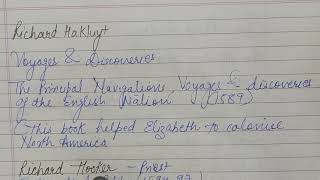 Richard Hakluyt
Voyages & Discoveries
The Principal Navigations, Voyages & discoveries
of the English Nation (1589)
(This book helped Elizabeth to colonise
North America
Richard Hooker - Priest